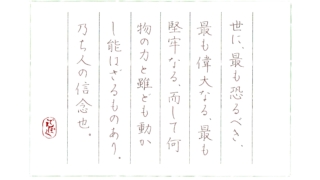 世に、最も恐るべき、
最も偉大なる、最も
堅牢なる、而して何
物の力と雖ども動か
し能はざるものあり。
乃ち人の信念也。